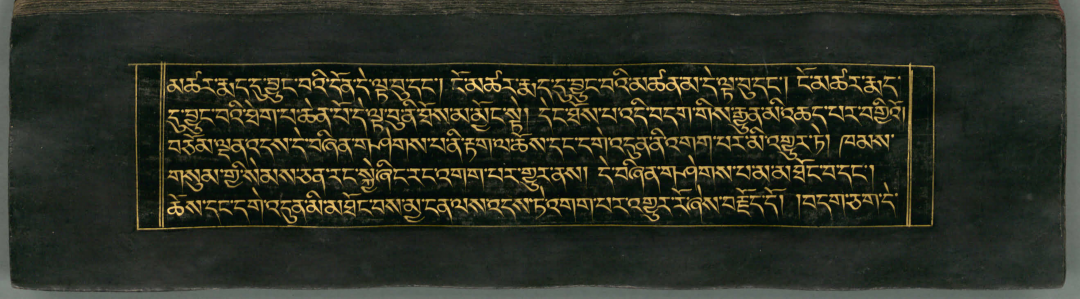 མཚར་རྨད་དུ་བྱུང་བའི་དོན་དེ་ལྟ་བུ་དང་། ངོ་མཚར་རྨད་དུ་བྱུང་བའི་མཚན་མ་དེ་ལྟ་བུ་དང་། ངོ་མཚར་རྨད་
དུ་བྱུང་བའི་ཐེག་པ་ཆེན་པོ་དེ་ལྟ་བུ་ནི་ཐོས་མ་མྱོང་སྟེ། དེང་ཐོས་པ་འདི་བདག་གིས་རྒྱུན་མི་འཆད་པར་བགྱིའོ།
བཅོམ་ལྡན་འདས་དེ་བཞིན་གཤེགས་པ་ནི་རྟག་ལ་ཆོས་དང་དགེ་འདུན་ནི་འགག་པར་མི་འགྱུར་ཏེ། ཁམས་
གསུམ་གྱི་སེམས་ཅན་རང་སྐྱེ་ཞིང་རང་འགག་པར་གྱུར་ནས། དེ་བཞིན་གཤེགས་པ་མ་མཐོང་བ་དང་།
ཆོས་དང་དགེ་འདུན་མི་མཐོང་བས་མྱ་ངན་ལས་འདས་ཏེ་འགག་པར་འགྱུར་རོ་ཞེས་བརྗོད་དོ། །བདག་ཅག་དེ་